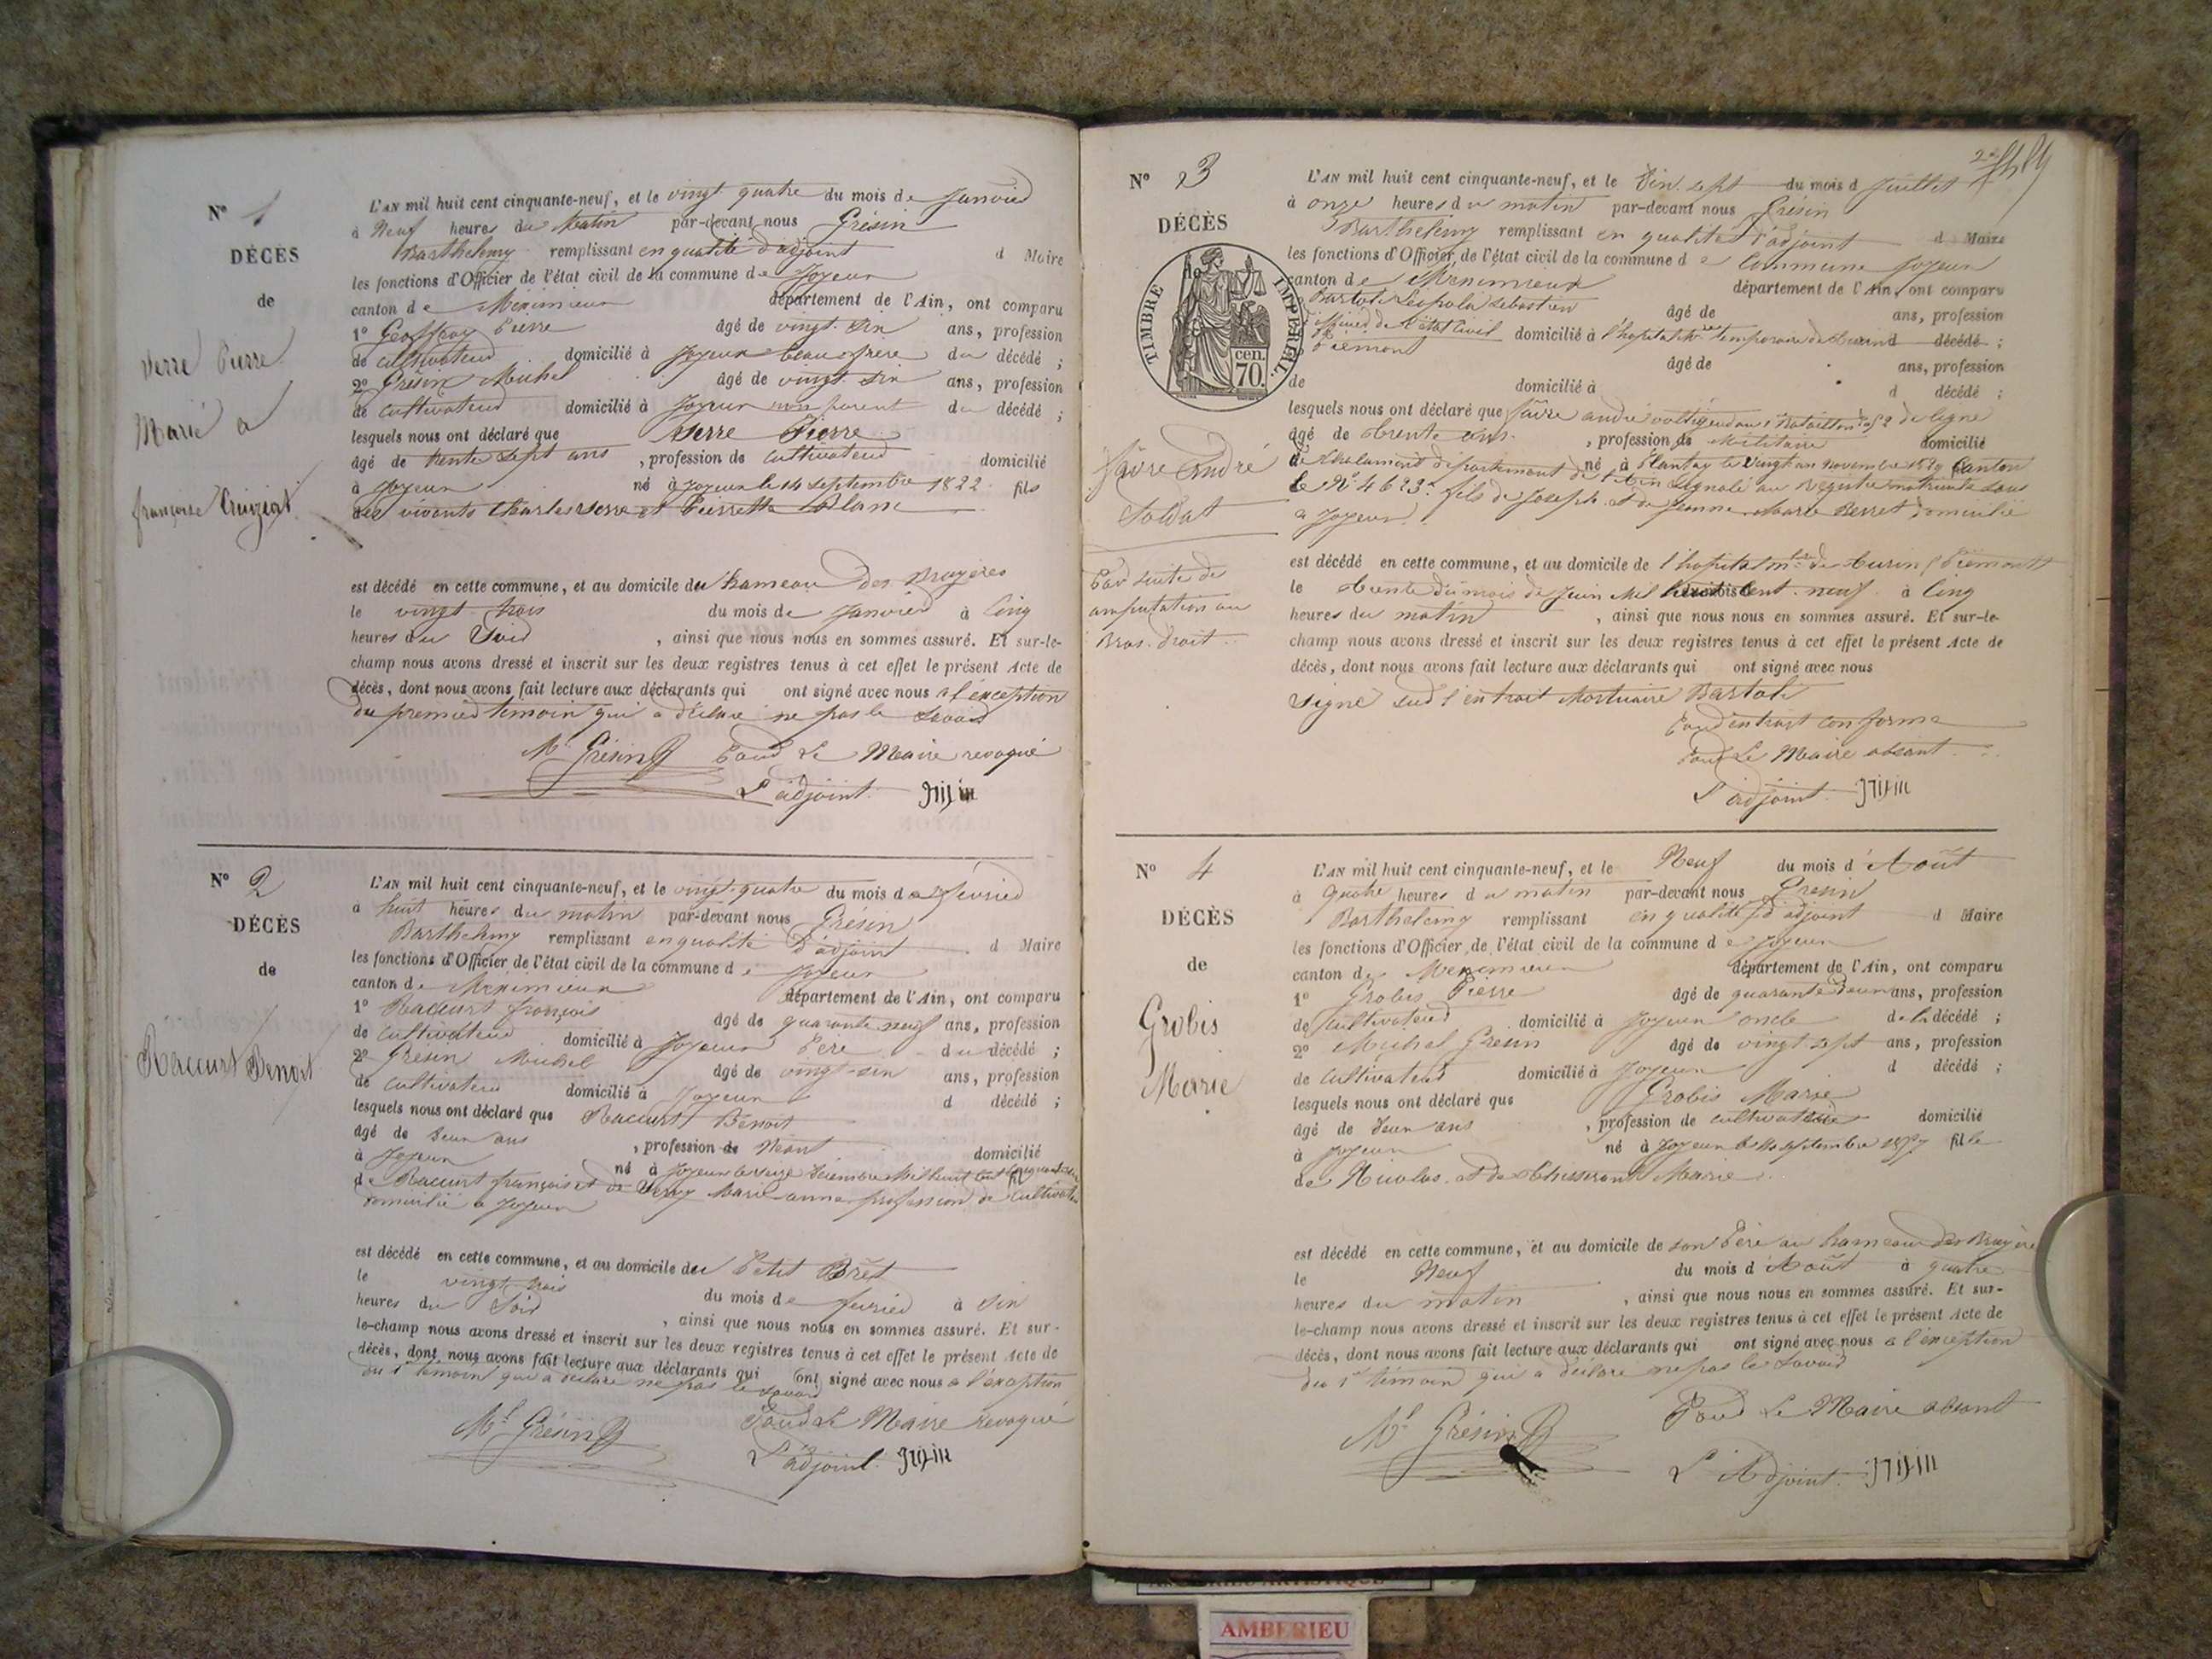 N° 1
DÉCÈS
de
Serre Pierre
Marié a
françoise Cruziat
L'AN mil huit cent cinquante-neuf, et le vingt quatre du mois de Janvier
à Neuf heures du Matin par-devant nous Grésin
Barthelemy remplissant en qualité d'adjoint d Maire
les fonctions d'Officier de l'état civil de la commune de Joyeux
canton de Meximieux département de l'Ain, ont comparu
1° Geoffray Pierre âgé de vingt-six ans, profession
de cultivateur domicilié à Joyeux beau frère du décédé ;
2° Grésin Michel âgé de vingt six ans, profession
de cultivateur domicilié à Joyeux non parent du décédé ;
lesquels nous ont déclaré que Serre Pierre
âgé de trente sept ans , profession de cultivateur domicilié
à Joyeux né à Joyeux le 14 septembre 1822 fils
des vivants Charles Serre et Pierrette Blanc
est décédé en cette commune, et au domicile du hameau des Bruyères
le vingt-trois du mois de Janvier à Cinq
heures du Soir , ainsi que nous nous en sommes assuré. Et sur-le-
champ nous avons dressé et inscrit sur les deux registres tenus à cet effet le présent Acte de
décès, dont nous avons fait lecture aux déclarants qui ont signé avec nous a l'exception
du premier temoin qui a déclaré ne pas le savoir
Ml Grésin Pour Le Maire revoqué
L'adjoint Grésin
N° 2
DÉCÈS
de
Raccurt Benoit
L'AN mil huit cent cinquante-neuf, et le vingt-quatre du mois de février
à huit heures du matin par-devant nous Grésin
Barthelemy remplissant en qualité d'adjoint d Maire
les fonctions d'Officier de l'état civil de la commune de Joyeux
canton de Meximieux département de l'Ain, ont comparu
1° Raccurt françois âgé de quarante neuf ans, profession
de cultivateur domicilié à Joyeux Père du décédé ;
2° Grésin Michel âgé de vingt-six ans, profession
de cultivateur domicilié à Joyeux d décédé ;
lesquels nous ont déclaré que Raccurt Benoit
âgé de Deux ans , profession de Néant domicilié
à Joyeux né à Joyeux le seize Décembre Mil huit cent fil
de Raccurt françois et de Marie anne profession de Cultivateur
domicilié a Joyeux
est décédé en cette commune, et au domicile du Petit Brêt
le vingt trois du mois de février à six
heures du Soir , ainsi que nous nous en sommes assuré. Et sur-
le-champ nous avons dressé et inscrit sur les deux registres tenus à cet effet le présent Acte de
décès, dont nous avons fait lecture aux déclarants qui ont signé avec nous a l'exception
du 1er témoin qui a déclaré ne pas le savoir
Ml Grésin Pour Le Maire revoqué
L'adjoint Grésin
N° 3
DÉCÈS
TIMBRE IMPÉRIAL.
cen.
70.
Favre André
Soldat
Par suite de
amputation au
Bras droit
L'AN mil huit cent cinquante-neuf, et le vin sept du mois d Juillet
à onze heures du matin par-devant nous Grésin
Barthelemy remplissant en qualité d'adjoint d Maire
les fonctions d'Officier de l'état civil de la commune de Commune Joyeux
canton de Meximieux département de l'Ain, ont comparu
Bartoli Léopold Sébastien âgé de ans, profession
officier de l'état Civil domicilié à l'hopital temporaire de Turin d décédé ;
Piémont âgé de ans, profession
de domicilié à d décédé ;
lesquels nous ont déclaré que favre andré voltigeur au 1 Bataillon 52 de ligne
âgé de trente ans , profession de Militaire domicilié
de Chalamont département de l'Ain né à Plantay le vingt un novembre 1829 Canton
signalé au registre matricule sous
le N° 4623 fils de Joseph et de Jeanne Marie Berret domicilié
a Joyeux
est décédé en cette commune, et au domicile de l'hopital mre de Turin (Piémont
le trente du mois de Juin Mil huit cent neuf à Cinq
heures du matin , ainsi que nous nous en sommes assuré. Et sur-le-
champ nous avons dressé et inscrit sur les deux registres tenus à cet effet le présent Acte de
décès, dont nous avons fait lecture aux déclarants qui ont signé avec nous
Signé sur l'extrait Mortuaire Bastoli
Pour extrait conforme
Pour Le Maire absant
L'adjoint Grésin
N° 4
DÉCÈS
de
Grobis
Marie
L'AN mil huit cent cinquante-neuf, et le Neuf du mois d'Août
à quatre heures du matin par-devant nous Grésin
Barthelemy remplissant en qualité d'adjoint d Maire
les fonctions d'Officier de l'état civil de la commune de Joyeux
canton de Meximieux département de l'Ain, ont comparu
1° Grobis Pierre âgé de quarante deux ans, profession
de cultivateur domicilié à Joyeux oncle de la décédé ;
2° Michel Grésin âgé de vingt sept ans, profession
de cultivateur domicilié à Joyeux d décédé ;
lesquels nous ont déclaré que Grobis Marie
âgé de deux ans , profession de cultivateur domicilié
à Joyeux né à Joyeux le septembre 1857 fille
de Nicolas et de Marie
est décédé en cette commune, et au domicile de son Père au hameau des Bruyère
le Neuf du mois d'Août à quatre
heures du matin , ainsi que nous nous en sommes assuré. Et sur-
le-champ nous avons dressé et inscrit sur les deux registres tenus à cet effet le présent Acte de
décès, dont nous avons fait lecture aux déclarants qui ont signé avec nous a l'exception
du 1er témoin qui a déclaré ne pas le savoir
Ml Grésin Pour Le Maire absant
L'Adjoint Grésin
AMBERIEU